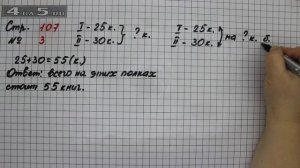 4FOR5.NET
Стр. 107
№ 3
I - 25 к.
II - 30 к.
? к.
25 + 30 = 55 (к.)
Ответ: всего на этих полках
стоит 55 книг.
I - 25 к.
II - 30 к.
на ? к. б.